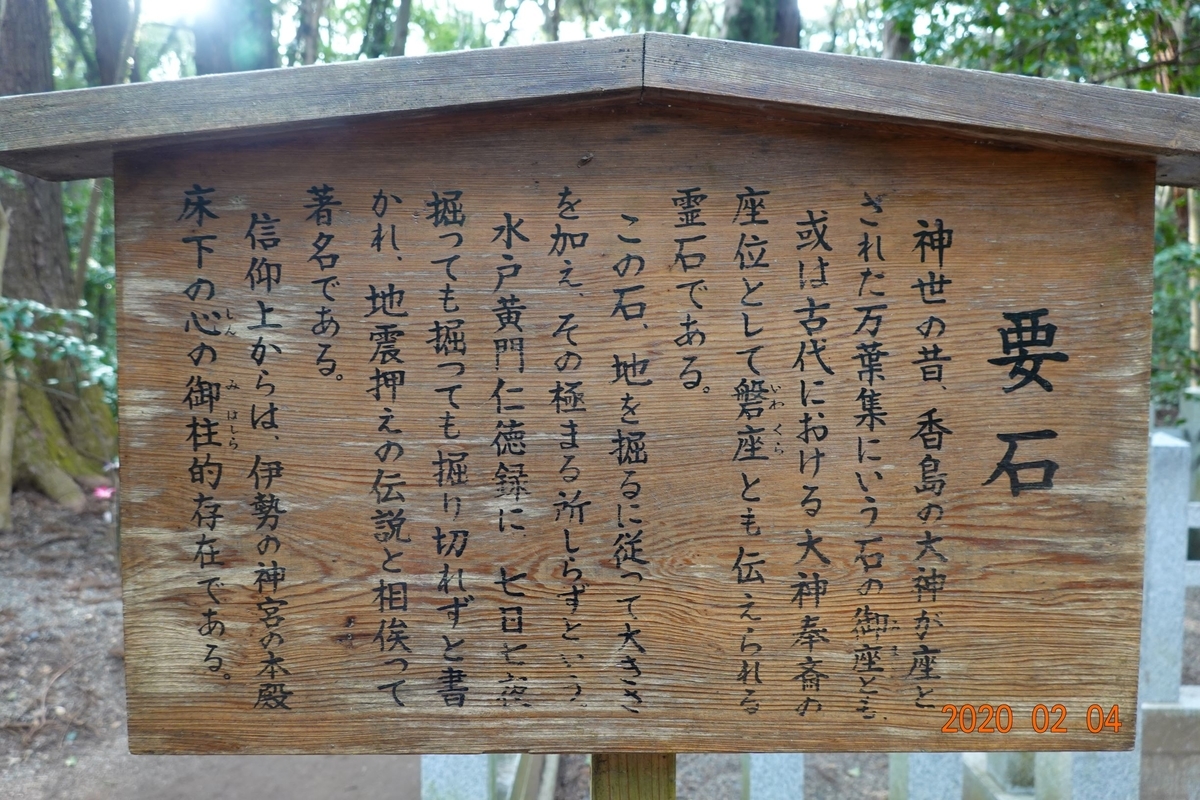 要石
神世の昔、香島の大神が座と
された万葉集にいう石の御座とも、
或は古代における大神奉斎の
座位として磐座とも伝えられる
いわくら
霊石である。
この石、地を掘るに従って大きさ
を加え、その極まる所しらずという。
水戸黄門仁徳録に、七日七夜
掘っても掘っても掘り切れずと書
かれ、地震押えの伝説と相俟って
著名である。
信仰上からは、伊勢の神宮の本殿
床下の心の御柱的存在である。
しん
みはしら
2020 02 04